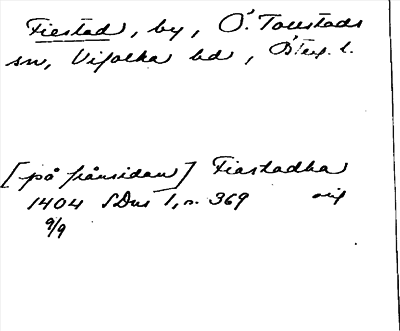 Fiestad, by, Ö. Tollstads
sn, Vifolka hd, Östg. l.
[på frånsidan] Fiastadha
1404 SDns 1, s. 369 orig
9/9